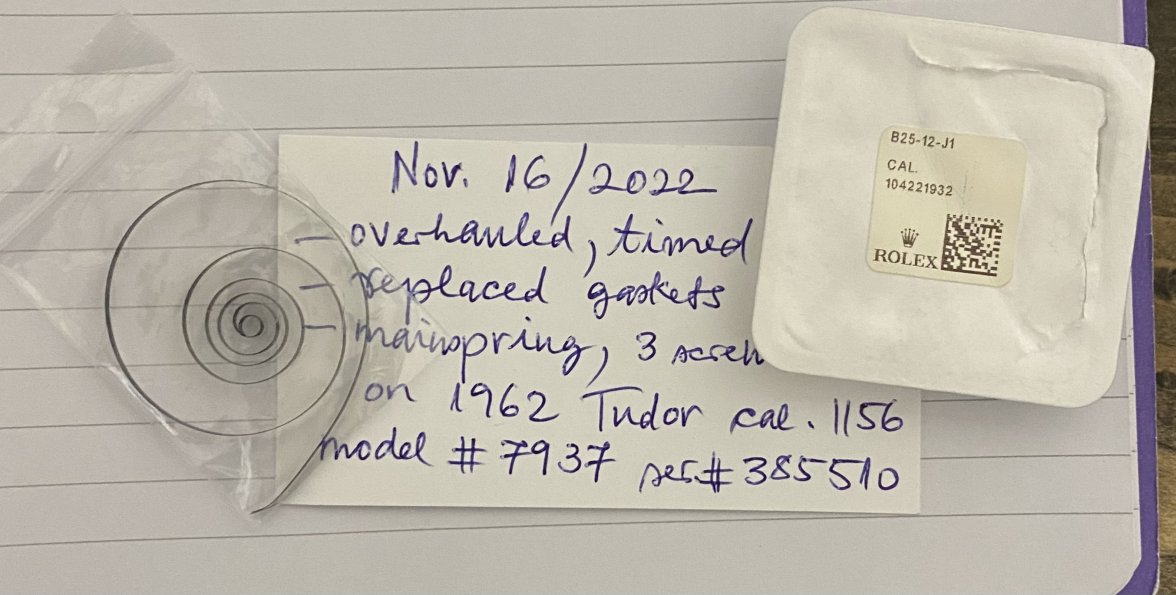 Nov. 16/2022
- overhauled, timed
- replaced gaskets
- mainspring, 3 screw
on 1962 Tudor cal. 1156
model # 7937 ser.# 385510
B25-12-J1
CAL.
104221932
ROLEX